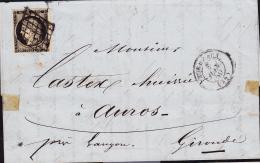 Monsieur
Castex huissier
à Auros
près Langon. Gironde